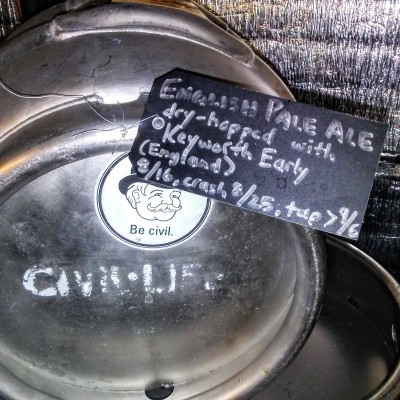 ENGLISH PALE ALE
dry-hopped with
Keyworth Early
(England)
8/16, crash 8/25, tap > 9/6
Be civil.
CIVIL·LIFE